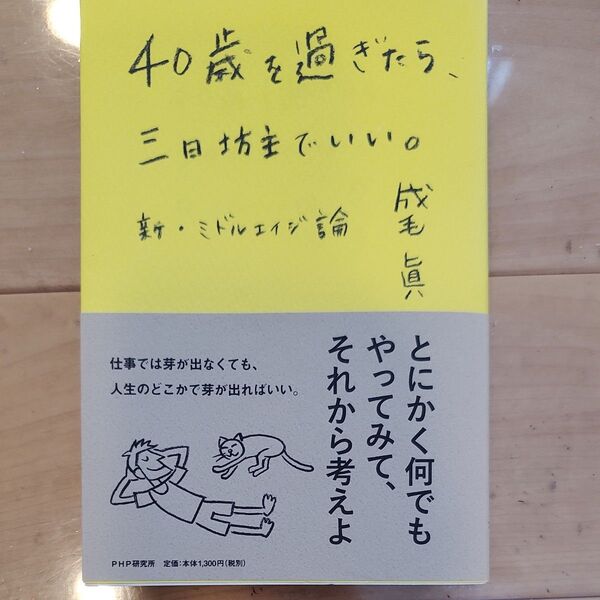 40歳を過ぎたら、
三日坊主でいい。
新・ミドルエイジ論
成毛眞
とにかく何でも
やってみて、
それから考えよ
仕事では芽が出なくても、
人生のどこかで芽が出ればいい。
PHP研究所 定価:本体1,300円(税別)